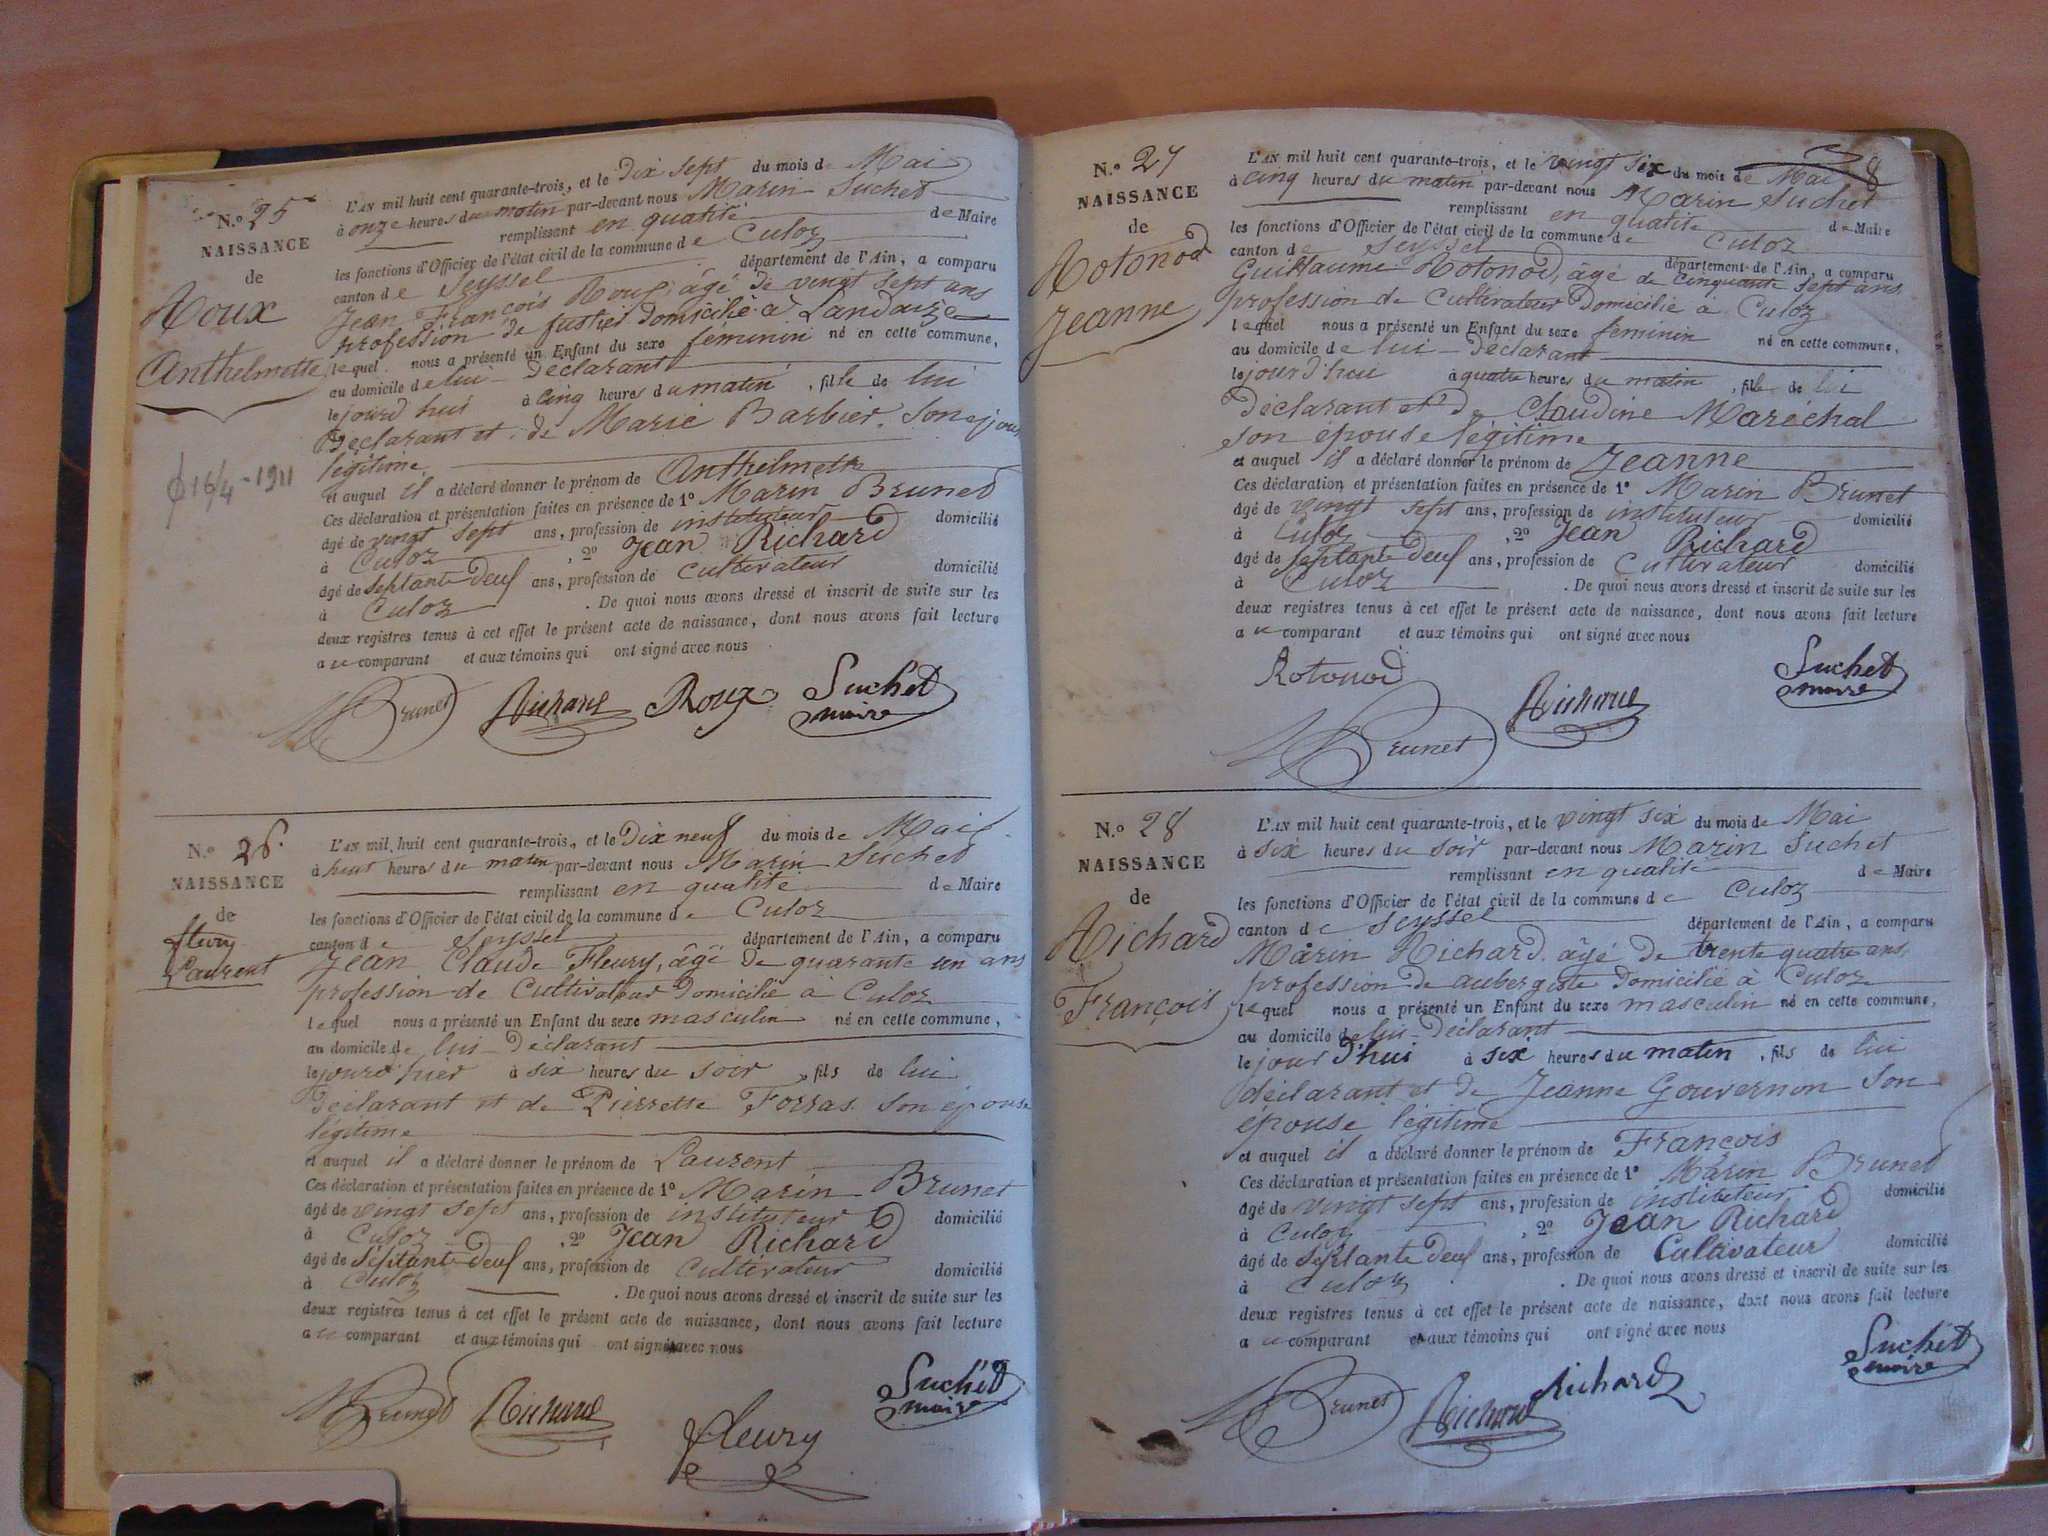 N.o 25
NAISSANCE
de
Roux
Anthelmette
16/4-1911
L'AN mil huit cent quarante-trois, et le Dix sept du mois de Mai
à onze heures du matin par-devant nous Marin Suchet
remplissant en qualité de Maire
les fonctions d'Officier de l'état civil de la commune de Culoz
canton de Seyssel département de l'Ain, a comparu
Jean François Roux, âgé de vingt sept ans
profession de domicilié à Landaize
lequel nous a présenté un Enfant du sexe féminin né en cette commune,
au domicile de lui Déclarant
le jourd'hui à cinq heures du matin, fille de lui
Déclarant et de Marie Barbier, son
légitime
et auquel il a déclaré donner le prénom de Anthelmette
Ces déclaration et présentation faites en présence de 1o Marin Brunet
âgé de vingt sept ans, profession de instituteur domicilié
à Culoz, 2o Jean Richard
âgé de septante deux ans, profession de cultivateur domicilié
à Culoz. De quoi nous avons dressé et inscrit de suite sur les
deux registres tenus à cet effet le présent acte de naissance, dont nous avons fait lecture
au comparant et aux témoins qui ont signé avec nous
Brunet Richard Roux Suchet
maire
N.o 26.
NAISSANCE
de
fleury
Laurent
L'AN mil huit cent quarante-trois, et le Dix neuf du mois de Mai
à huit heures du matin par-devant nous Marin Suchet
remplissant en qualité de Maire
les fonctions d'Officier de l'état civil de la commune de Culoz
canton de Seyssel département de l'Ain, a comparu
Jean Claude Fleury, âgé de quarante un ans
profession de Cultivateur domicilié à Culoz
lequel nous a présenté un Enfant du sexe masculin né en cette commune,
au domicile de lui Déclarant
le jourd'hier à six heures du soir, fils de lui
Déclarant et de Pierrette Forras son épouse
légitime
et auquel il a déclaré donner le prénom de Laurent
Ces déclaration et présentation faites en présence de 1o Marin Brunet
âgé de vingt sept ans, profession de instituteur domicilié
à Culoz, 2o Jean Richard
âgé de Septante deux ans, profession de cultivateur domicilié
à Culoz. De quoi nous avons dressé et inscrit de suite sur les
deux registres tenus à cet effet le présent acte de naissance, dont nous avons fait lecture
au comparant et aux témoins qui ont signé avec nous
Brunet Richard fleury Suchet
maire
8
N.o 27
NAISSANCE
de
Rotonod
Jeanne
L'AN mil huit cent quarante-trois, et le vingt six du mois de Mai
à cinq heures du matin par-devant nous Marin Suchet
remplissant en qualité de Maire
les fonctions d'Officier de l'état civil de la commune de Culoz
canton de Seyssel département de l'Ain, a comparu
Guillaume Rotonod, âgé de cinquante sept ans
profession de cultivateur Domicilié à Culoz
lequel nous a présenté un Enfant du sexe féminin né en cette commune,
au domicile de lui Déclarant
le jourd'hui à quatre heures du matin, fille de lui
Déclarant et de Claudine Maréchal
son épouse légitime
et auquel il a déclaré donner le prénom de Jeanne
Ces déclaration et présentation faites en présence de 1o Marin Brunet
âgé de vingt sept ans, profession de instituteur domicilié
à Culoz, 2o Jean Richard
âgé de Septante deux ans, profession de Cultivateur domicilié
à Culoz. De quoi nous avons dressé et inscrit de suite sur les
deux registres tenus à cet effet le présent acte de naissance, dont nous avons fait lecture
au comparant et aux témoins qui ont signé avec nous
Rotonod Suchet
maire
Brunet Richard
N.o 28
NAISSANCE
de
Richard
François
L'AN mil huit cent quarante-trois, et le vingt six du mois de Mai
à six heures du soir par-devant nous Marin Suchet
remplissant en qualité de Maire
les fonctions d'Officier de l'état civil de la commune de Culoz
canton de Seyssel département de l'Ain, a comparu
Marin Richard âgé de trente quatre ans,
profession de aubergiste Domicilié à Culoz
lequel nous a présenté un Enfant du sexe masculin né en cette commune,
au domicile de lui Déclarant
le jour d'hui à six heures du matin, fils de lui
déclarant et de Jeanne Gouvernon son
épouse légitime
et auquel il a déclaré donner le prénom de François
Ces déclaration et présentation faites en présence de 1o Marin Brunet
âgé de vingt sept ans, profession de instituteur domicilié
à Culoz, 2o Jean Richard
âgé de Septante deux ans, profession de Cultivateur domicilié
à Culoz. De quoi nous avons dressé et inscrit de suite sur les
deux registres tenus à cet effet le présent acte de naissance, dont nous avons fait lecture
au comparant et aux témoins qui ont signé avec nous
Brunet Richard Richard Suchet
maire